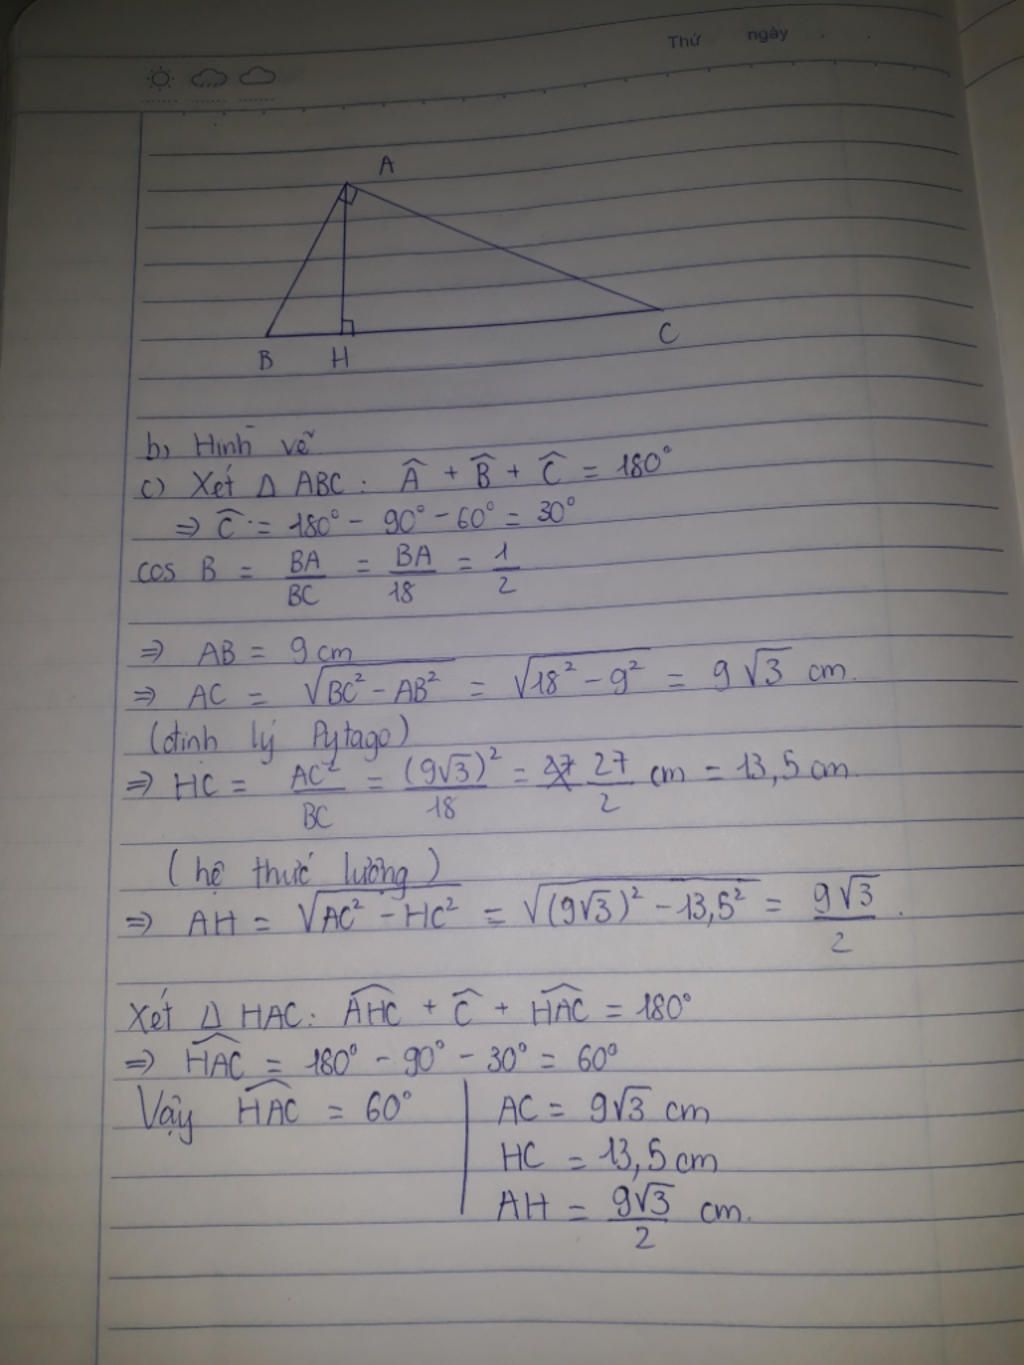 Thứ ngày
A
B H C
b, Hình vẽ
c) Xét Δ ABC: Â + B̂ + Ĉ = 180°
⇒ Ĉ = 180° - 90° - 60° = 30°
cos B = BA/BC = BA/18 = 1/2
⇒ AB = 9 cm
⇒ AC = √(BC² - AB²) = √(18² - 9²) = 9√3 cm.
(định lý Pytago)
⇒ HC = AC²/BC = (9√3)²/18 = 27/2 cm = 13,5 cm
(hệ thức lường)
⇒ AH = √(AC² - HC²) = √((9√3)² - 13,5²) = 9√3/2.
Xét Δ HAC: AHC + Ĉ + HAC = 180°
⇒ HAC = 180° - 90° - 30° = 60°
Vậy HAC = 60°
AC = 9√3 cm
HC = 13,5 cm
AH = 9√3/2 cm.